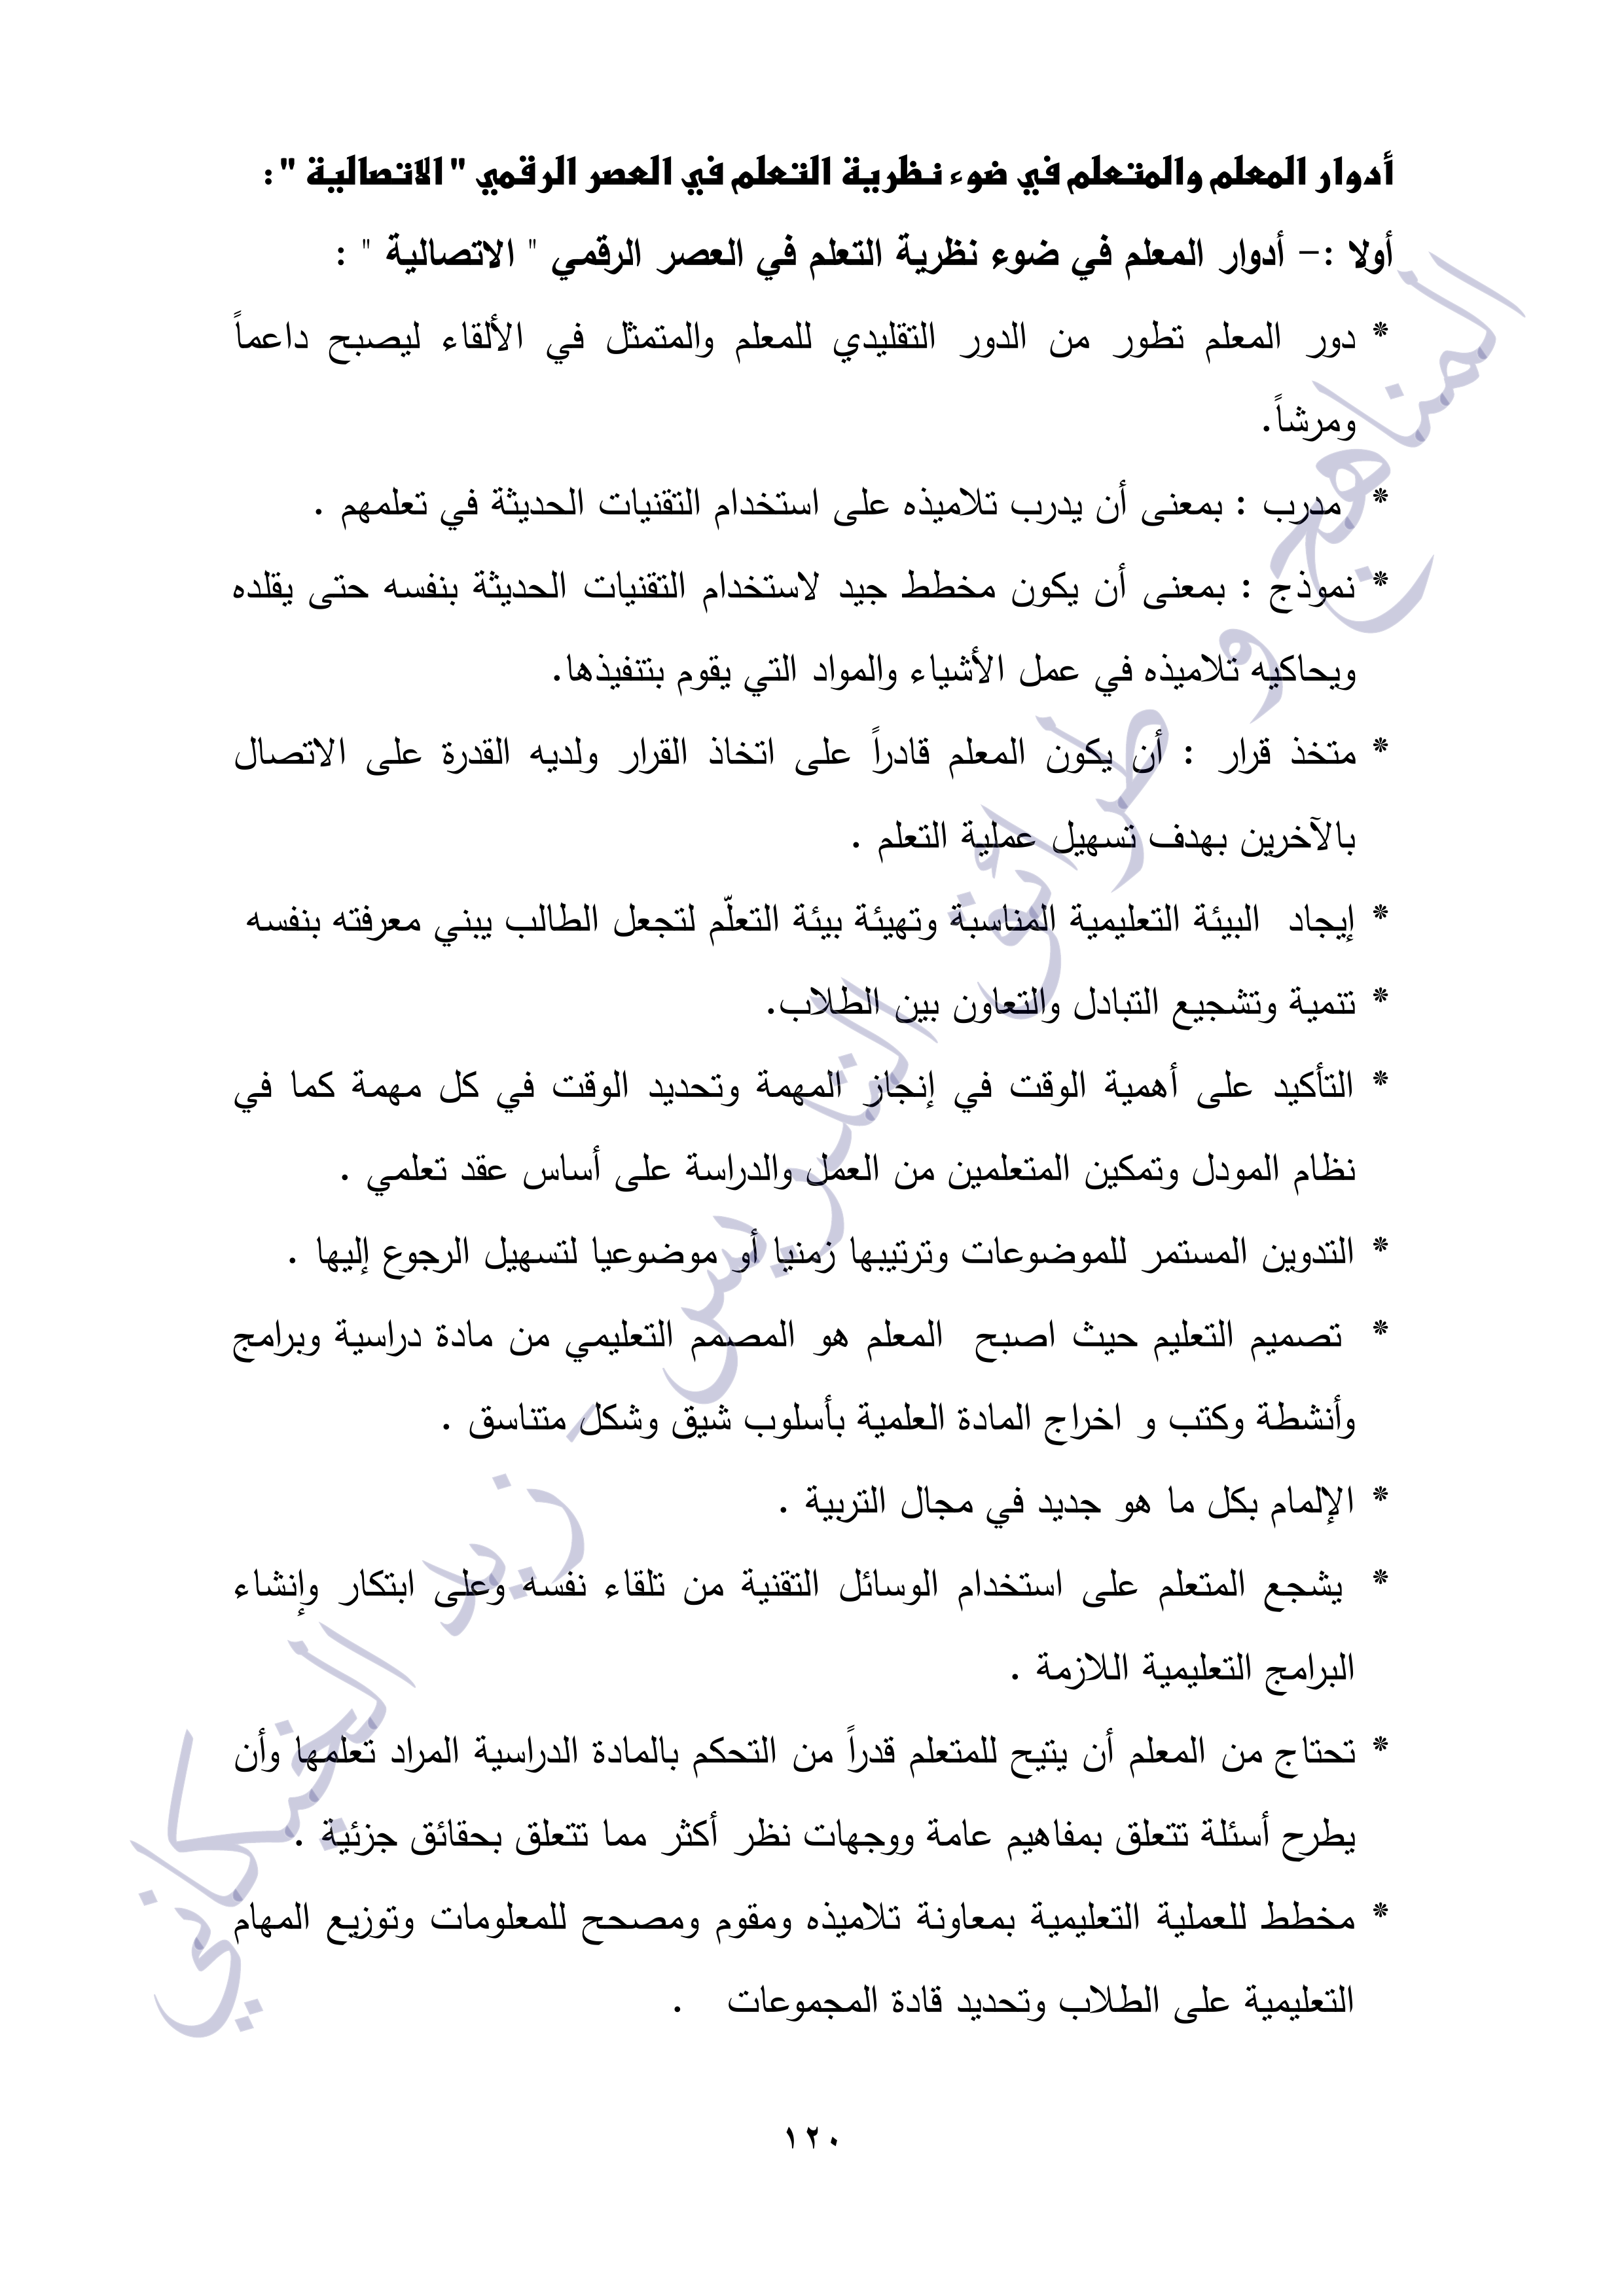 أدوار المعلم والمتعلم في ضوء نظرية التعلم في العصر الرقمي " الاتصالية " :
أولا :– أدوار المعلم في ضوء نظرية التعلم في العصر الرقمي " الاتصالية " :
* دور المعلم تطور من الدور التقليدي للمعلم والمتمثل في الألقاء ليصبح داعماً
ومرشاً.
* مدرب : بمعنى أن يدرب تلاميذه على استخدام التقنيات الحديثة في تعلمهم .
* نموذج : بمعنى أن يكون مخطط جيد لاستخدام التقنيات الحديثة بنفسه حتى يقلده
ويحاكيه تلاميذه في عمل الأشياء والمواد التي يقوم بتنفيذها.
* متخذ قرار : أن يكون المعلم قادراً على اتخاذ القرار ولديه القدرة على الاتصال
بالآخرين بهدف تسهيل عملية التعلم .
* إيجاد البيئة التعليمية المناسبة وتهيئة بيئة التعلّم لتجعل الطالب يبني معرفته بنفسه
* تنمية وتشجيع التبادل والتعاون بين الطلاب.
* التأكيد على أهمية الوقت في إنجاز المهمة وتحديد الوقت في كل مهمة كما في
نظام المودل وتمكين المتعلمين من العمل والدراسة على أساس عقد تعلمي .
* التدوين المستمر للموضوعات وترتيبها زمنيا أو موضوعيا لتسهيل الرجوع إليها .
* تصميم التعليم حيث اصبح المعلم هو المصمم التعليمي من مادة دراسية وبرامج
وأنشطة وكتب و اخراج المادة العلمية بأسلوب شيق وشكل متناسق .
* الإلمام بكل ما هو جديد في مجال التربية .
* يشجع المتعلم على استخدام الوسائل التقنية من تلقاء نفسه وعلى ابتكار وإنشاء
البرامج التعليمية اللازمة .
* تحتاج من المعلم أن يتيح للمتعلم قدراً من التحكم بالمادة الدراسية المراد تعلمها وأن
يطرح أسئلة تتعلق بمفاهيم عامة ووجهات نظر أكثر مما تتعلق بحقائق جزئية .
* مخطط للعملية التعليمية بمعاونة تلاميذه ومقوم ومصحح للمعلومات وتوزيع المهام
التعليمية على الطلاب وتحديد قادة المجموعات .
١٢٠
المناهج و طرائق التدريس - زيد الخيكاني